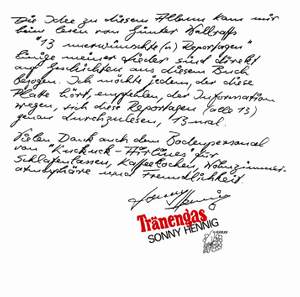 Die Idee zu diesem Album kam mir
beim lesen von Günter Wallraffs
"13 unerwünschte(n) Reportagen"
Einige meiner Lieder sind direkt
auf Geschichten aus diesem Buch
bezogen. Ich möchte jedem, der diese
Platte hört, empfehlen, der Information
wegen, sich diese Reportagen (alle 13)
genau durchzulesen, 13 mal.
Vielen Dank auch dem Bodenpersonal
von "Kuckuck-Airlines" für
Schlafenlassen, Kaffeekochen, Wohnzimmer-
atmosphäre und Freundlichkeit.
Sonny Hennig
Tränengas
SONNY HENNIG